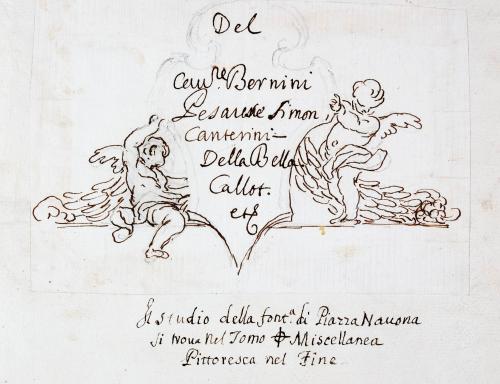 Del
Cav.re Bernini
Pesarese Simon,
Canterini
Della Bella
Callot.
etc
Il studio della font.a di Piazza Nauona
si troua nel Tomo Miscellanea
Pittoresca nel Fine